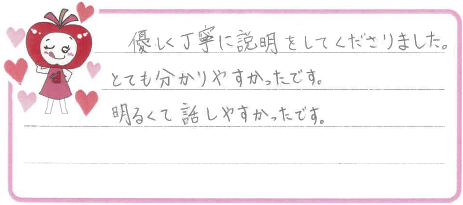 優しく丁寧に説明をしてくださりました。
とても分かりやすかったです。
明るくて話しやすかったです。